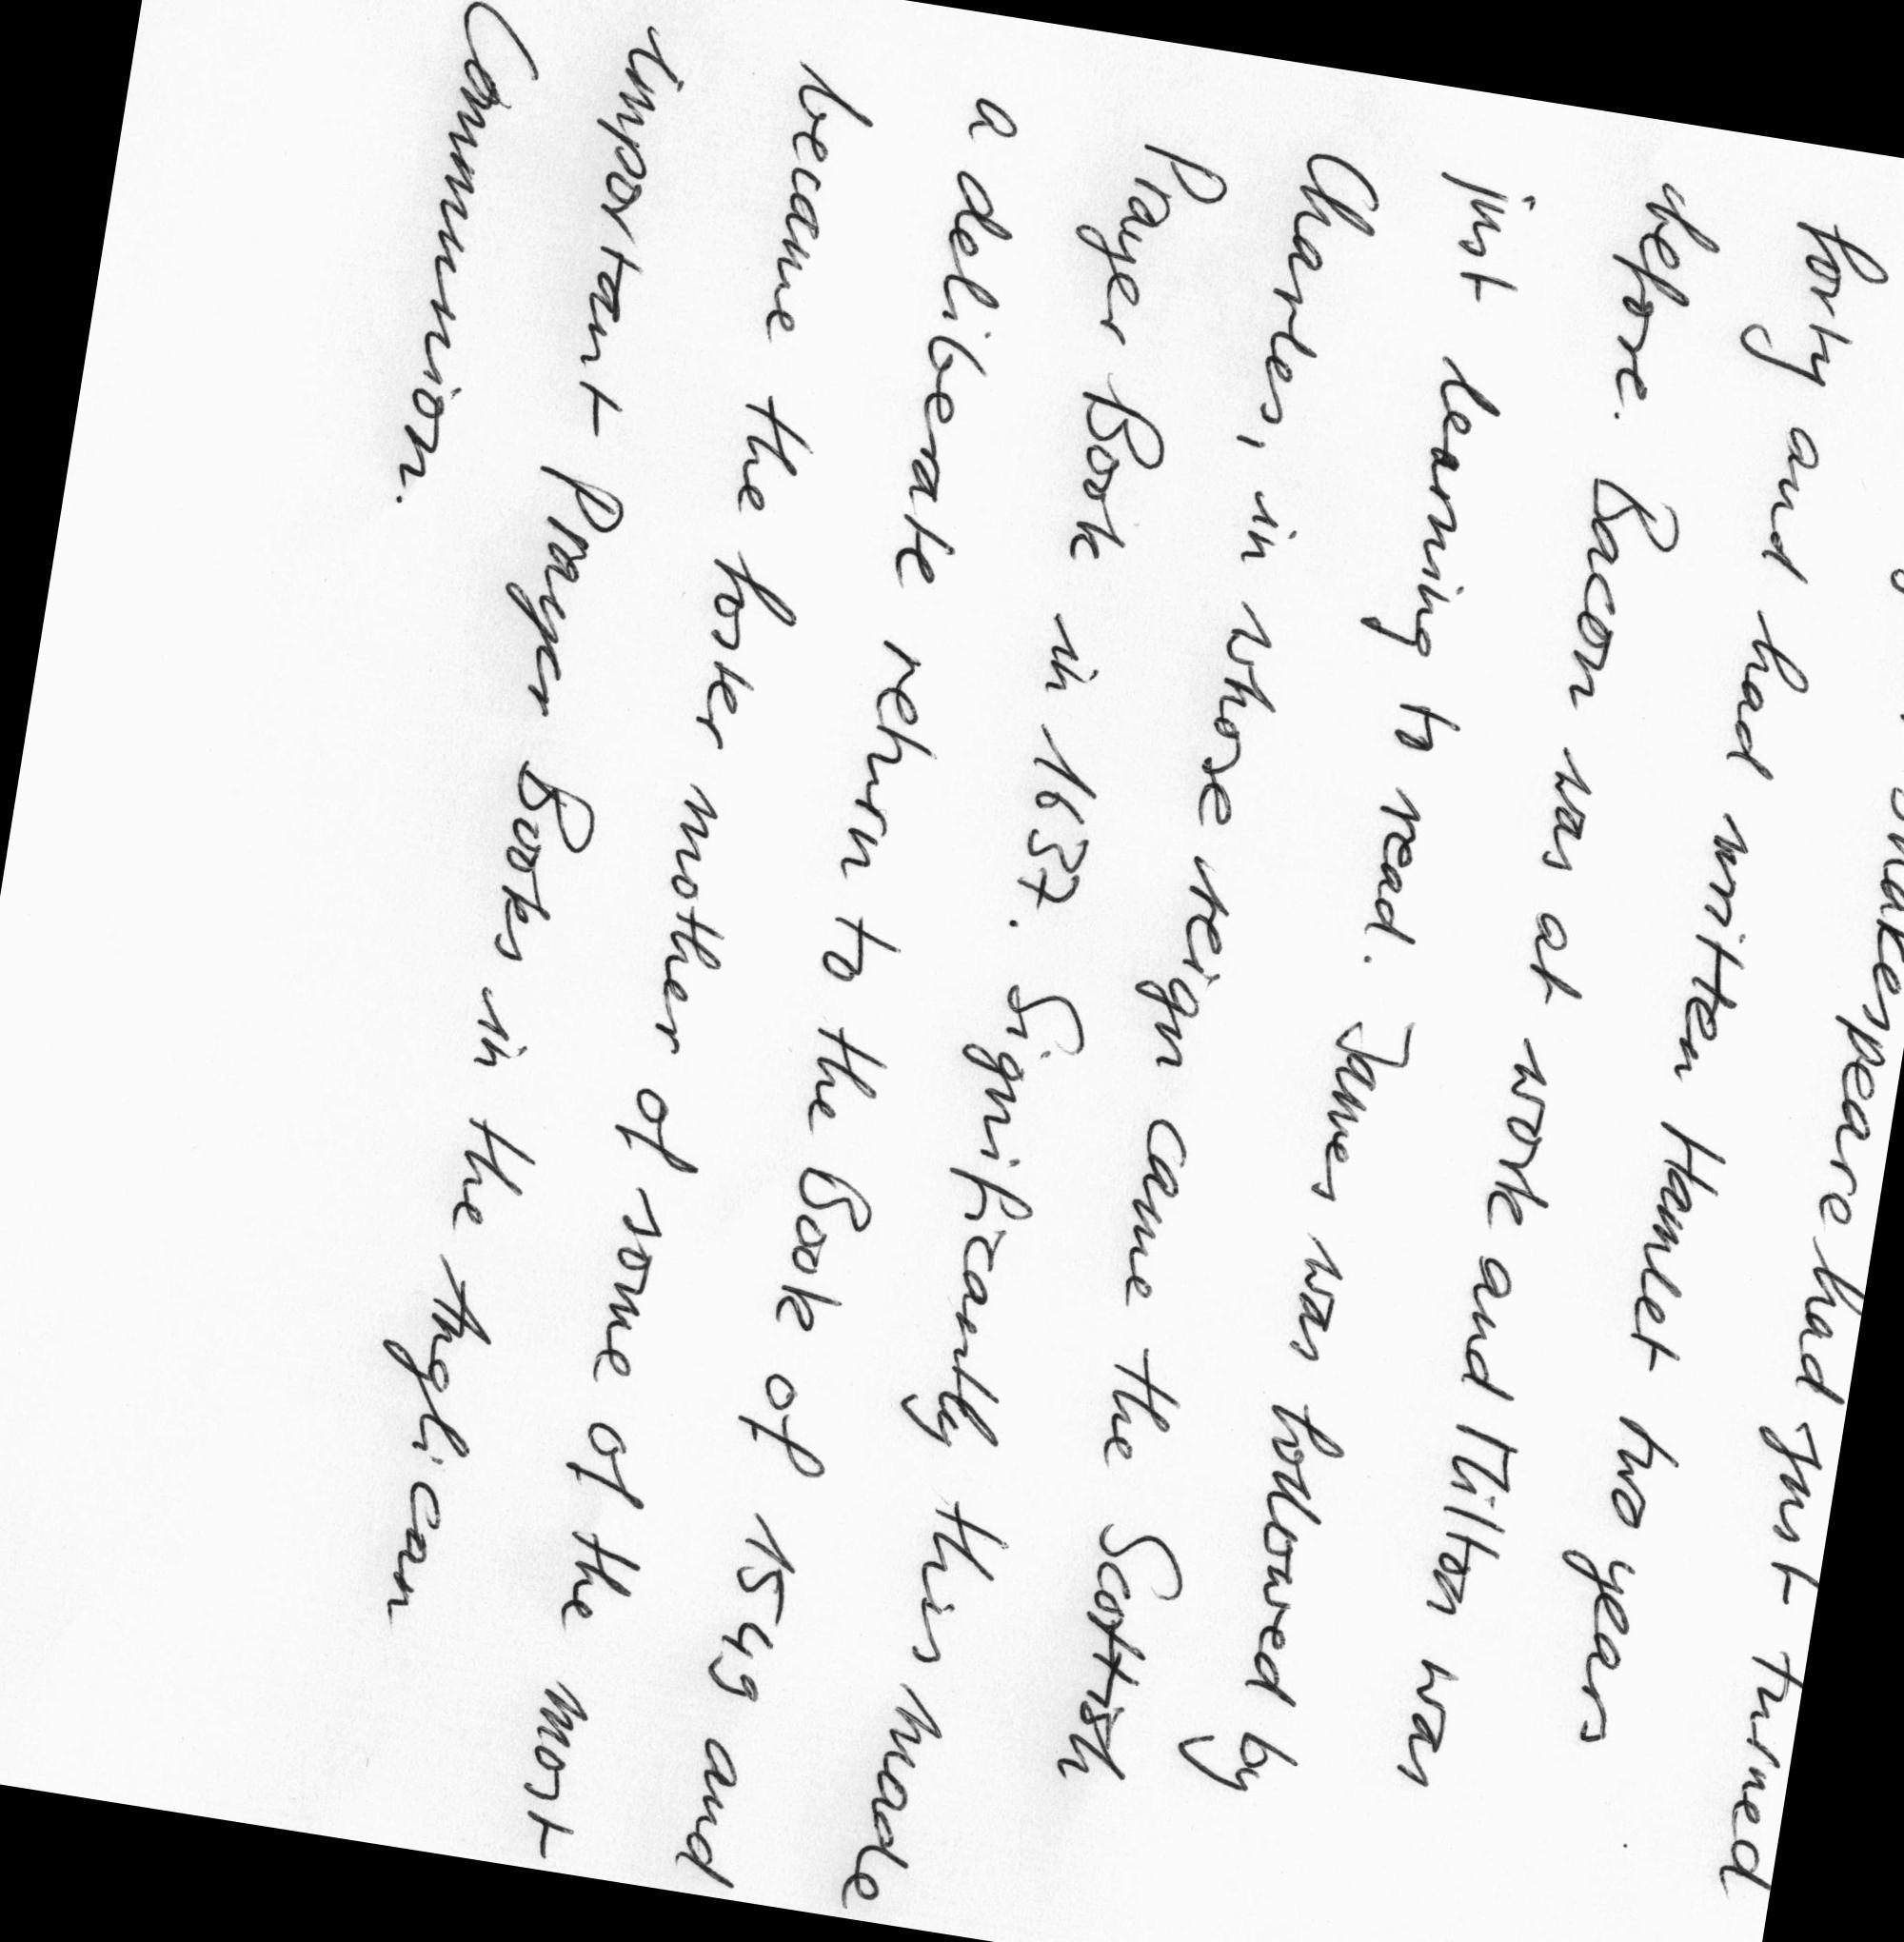 Shakespeare had just turned
forty and had written Hamlet two years
before. Bacon was at work and Milton was
just learning to read. James was followed by
Charles, in whose reign came the Scottish
Prayer Book in 1637. Significantly this made
a deliberate return to the Book of 1549 and
became the foster mother of some of the most
important Prayer Books in the Anglican
Communion.